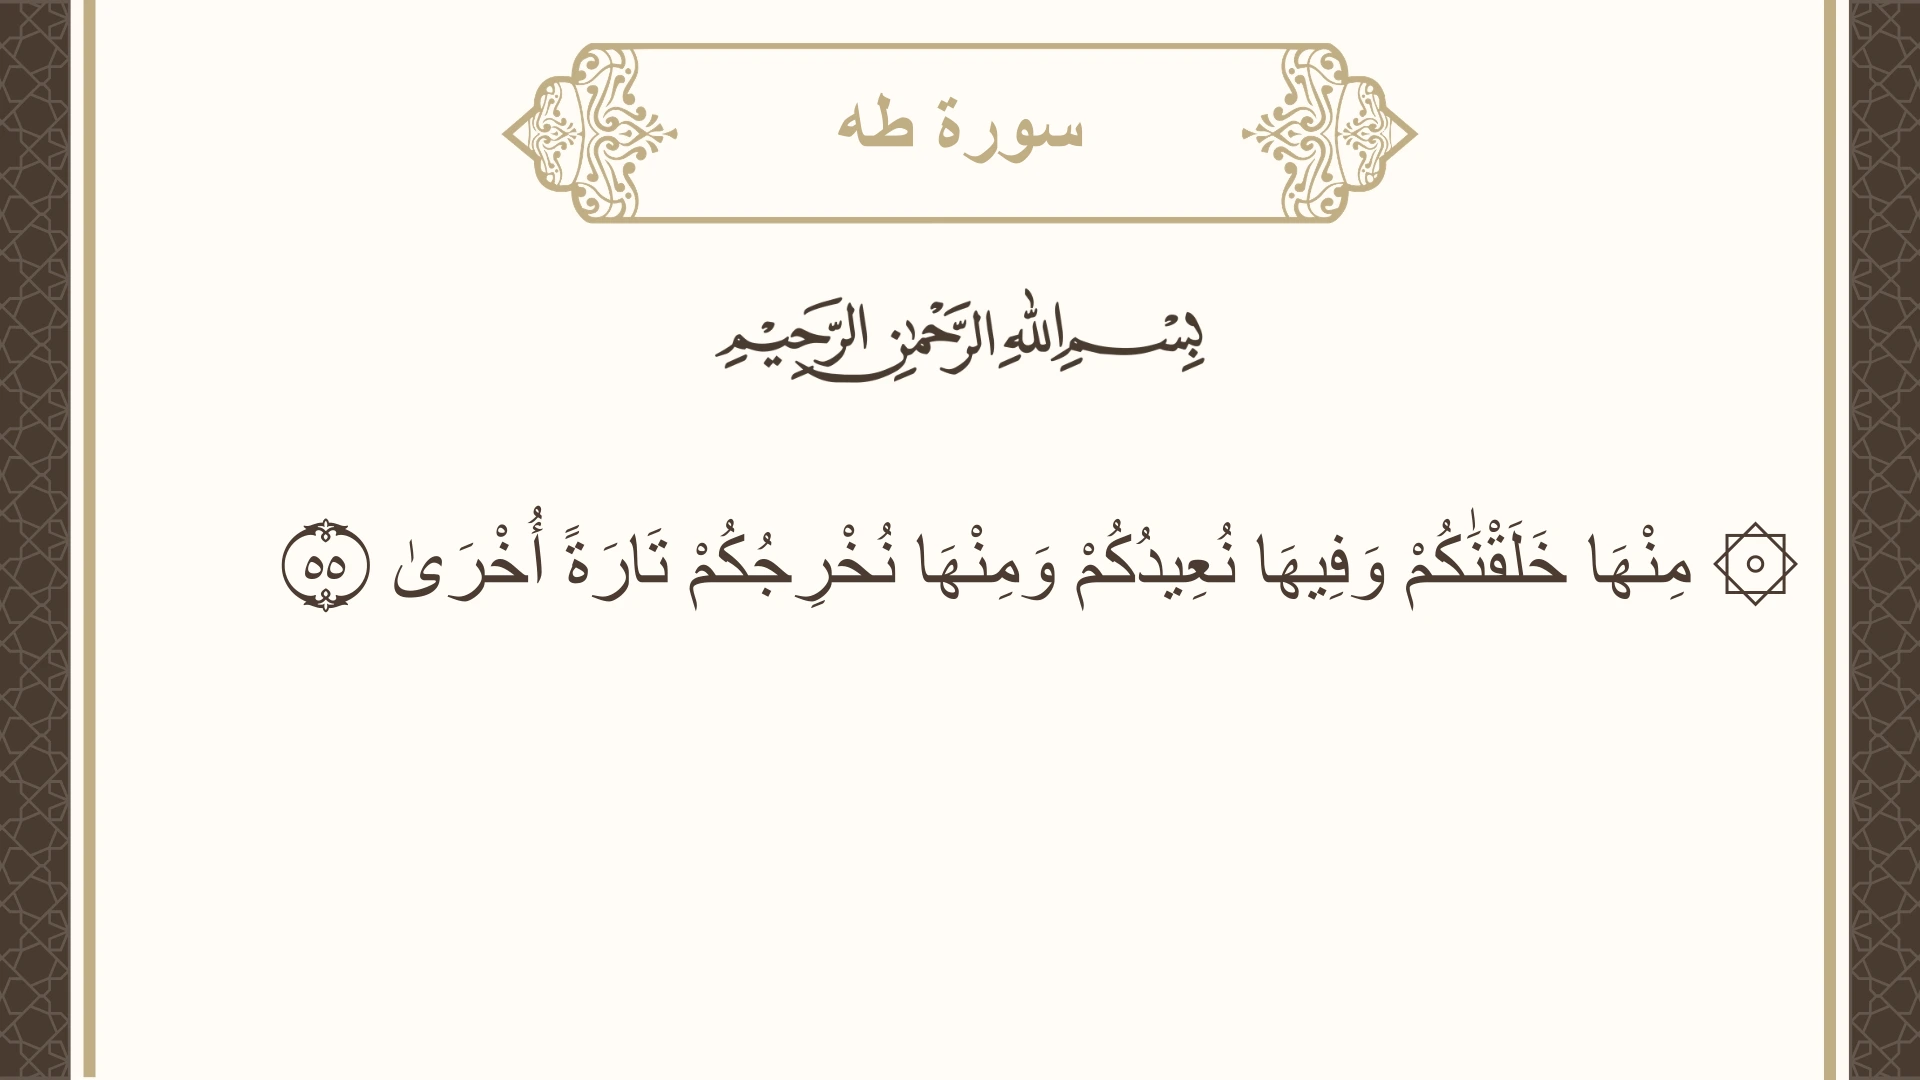 سورة طه
بِسْمِ اللهِ الرَّحْمٰنِ الرَّحِيْمِ
۞ مِنْهَا خَلَقْنَٰكُمْ وَفِيهَا نُعِيدُكُمْ وَمِنْهَا نُخْرِجُكُمْ تَارَةً أُخْرَىٰ ٥٥